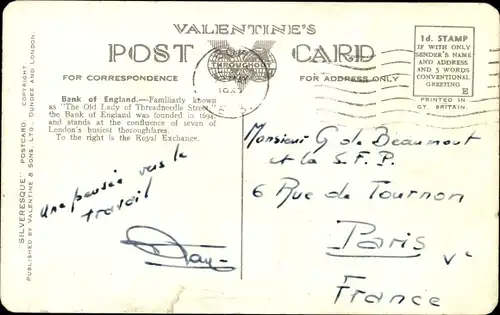 VALENTINE'S
POST CARD
FOR CORRESPONDENCE
FOR ADDRESS ONLY
1d. STAMP
IF WITH ONLY
SENDER'S NAME
AND ADDRESS
AND 5 WORDS
CONVENTIONAL
GREETING
E
PRINTED IN
GT. BRITAIN
"SILVERESQUE" POSTCARD COPYRIGHT
PUBLISHED BY VALENTINE & SONS, LTD. DUNDEE AND LONDON.
Bank of England.—Familiarly known
as "The Old Lady of Threadneedle Street,"
the Bank of England was founded in 1694,
and stands at the confluence of seven of
London's busiest thoroughfares.
To the right is the Royal Exchange.
une pensée vers le
travail
Monsieur G de Beaumont
et la S.F.P.
6 Rue de Tournon
Paris
France